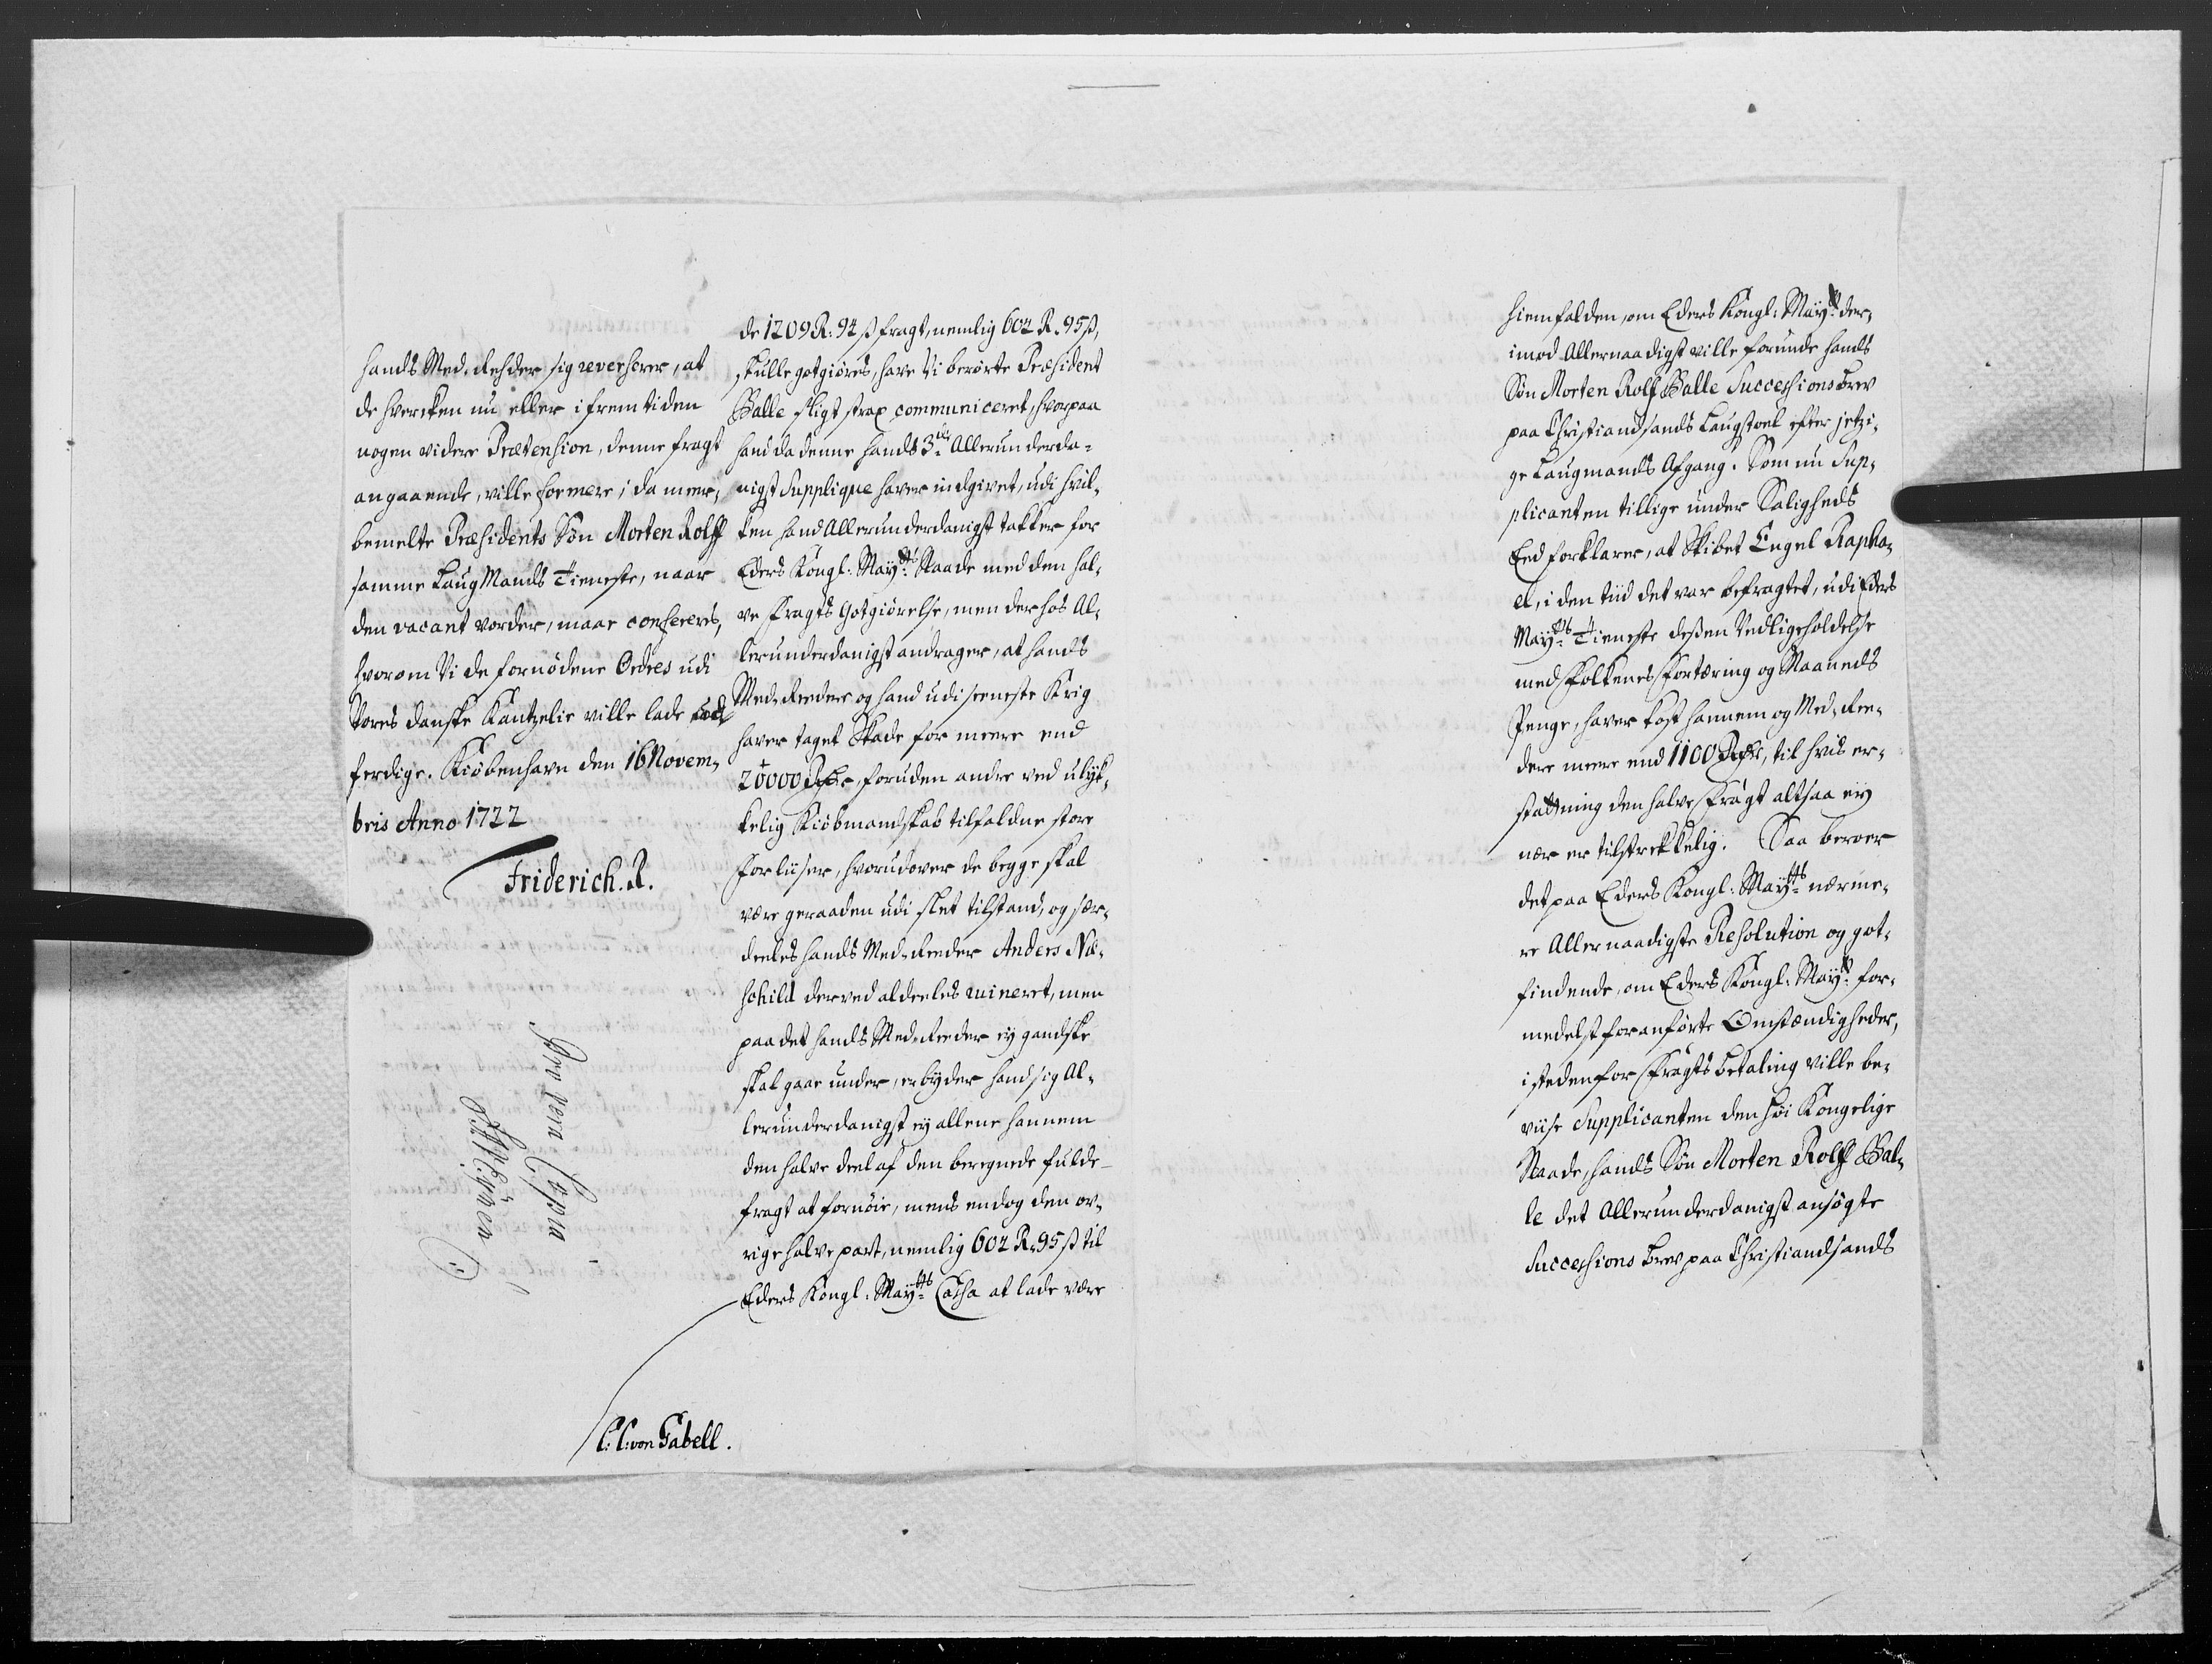 hands Med-Rehder sig reverserer, at
de hvercken nu eller i fremtiden
nogen videre Prætension, denne fragt
angaaende, ville formere; da meer-
bemelte Præsidents Søn Morten Rolff
samme Laug Mands Tieneste, naar
den vacant vorder, maae confereres,
hvorom Vi de fornødene Ordres udi
Vores danske Kantzelie ville lade ud-
ferdige. Kiøbenhavn den 16 Novem-
bris Anno 1722
Friderich. R.
Pro vera Copia
de 1209 R: 94 ß fragt, nemlig 604 R. 95 ß,
skulle gotgiøres, have Vi berørte Præsident
Balle sligt strax communiceret, hvorpaa
hand da denne hands 3die Allerunderda-
nigst Supplique haver indgivet, udi hvil-
ken hand Allerunderdanigst takker for
Eders Kongl: May:tts Naade med den hal-
ve Fragts Gotgiørelse, men derhos Al-
lerunderdanigst andrager, at hands
Med-Reeder og hand udi seeneste Krig
haver taget Skade for meere end
20000 Rdr, foruden andre ved ulyk-
kelig Kiøbmandskab tilfaldne store
Forliiser, hvorudover de begge skal
være geraaden udi slet tilstand, og sær-
deeles hands Med-Reeder Anders Næ-
schild derved aldeeles ruineret, men
paa det hands Med-Reeder ey gandske
skal gaae under, erbyder hand sig Al-
lerunderdanigst ey allene hannem
den halve deel af den beregnede fulde
fragt at fornøie, mens endog den øv-
rige halve part, nemlig 604 R. 95 ß til
Eders Kongl: May:tts Cassa at lade være
C: C: von Gabell.
hiemfalden, om Eders Kongl: May:tt der-
imod Allernaadigst ville forunde hands
Søn Morten Rolff Balle Successions Brev
paa Christiansands Laugstoel efter jetzi-
ge Laugmands Afgang. Som nu Sup-
plicanten tillige under Saligheds
Eed forklarer, at Skibet Engel Rapha-
el, i den tiid det var befragtet, udi Eders
May:tts Tieneste dessen Vedligeholdelse
med Folkenes Fortæring og Maaneds
Penge, haver kost hannem og Med-Ree-
dere meere end 1100 Rdr, til hvis er-
stattning den halve Fragt altsaa ey
nær er tilstrekkelig. Saa beroer
det paa Eders Kongl: May:tts nærme-
re Allernaadigste Resolution og got-
findende, om Eders Kongl: May:tt for-
medelst foranførte Omstændigheder,
isteden for Fragts betaling ville be-
viise Supplicanten den høi Kongelige
Naade, hands Søn Morten Rolff Bal-
le det Allerunderdanigst ansøgte
Successions Brev paa Christiandsands